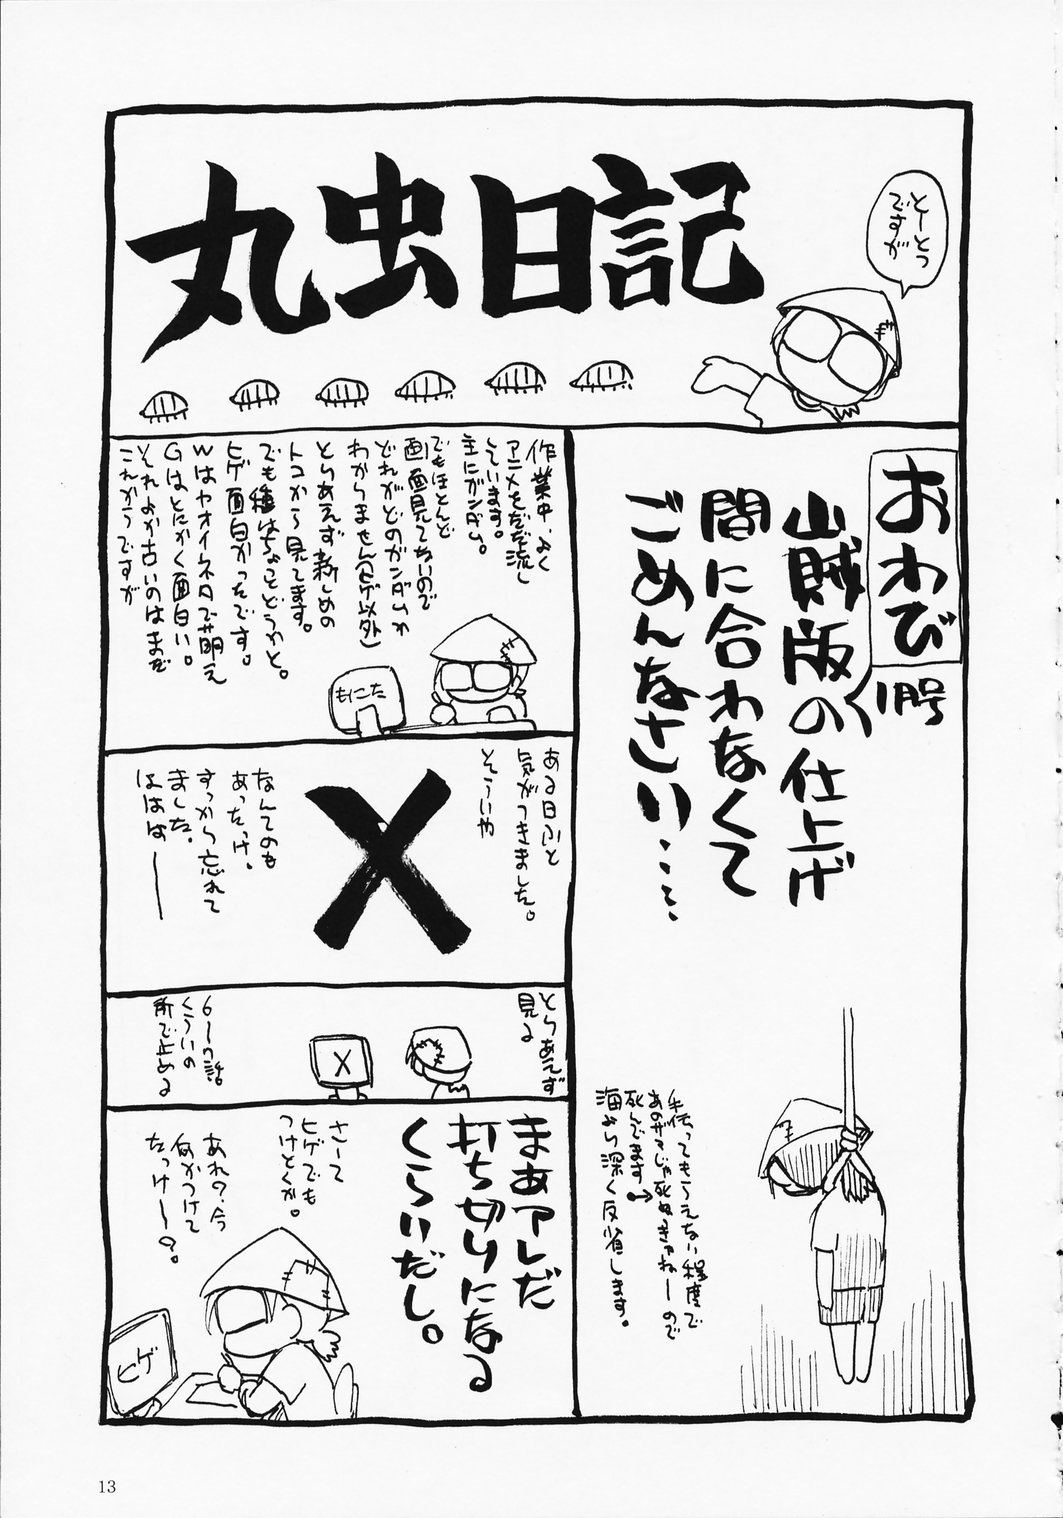 丸虫日記
とーとつ
ですが
おわび
1号
山賊版の仕上げ
間に合わなくて
ごめんなさい…
手伝ってもらえない程度で
あのザマじゃ死ぬっきゃねーので
死んでます→
海より深く反省します。
作業中、よく
アニメをだだ流し
しています。
主にガンダム。
でもほとんど
画面見てないので
どれがどのガンダムか
わかりません(ヒゲ以外)
とりあえず新しめの
トコから見てます。
でも種はちょっとどうかと。
ヒゲ面白かったです。
Wはヤオイネタで萌え
Gはとにかく面白い。
それよか古いのはまだ
これからですが
もにた
ある日ふと
気がつきました。
そういや
X
なんてのも
あったっけ。
すっから忘れて
ました。
ははは――
とりあえず
見る
X
6〜7話
くらいの
所で止める
まぁアレだ
打ち切りになる
くらいだし。
さーて
ヒゲでも
つけとくか。
あれ?今
何かつけて
たっけ〜?。
ヒゲ
13